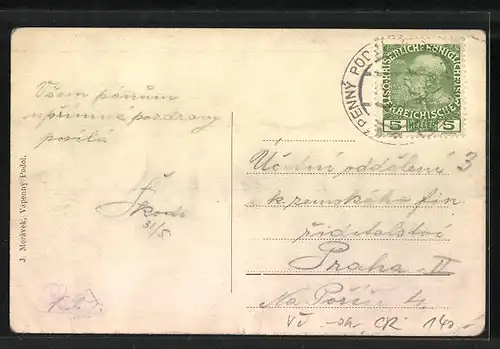 Všem pánům
upřímné pozdravy
posílá
Škoda
31/5
J. Morávek, Vápenný Podol.
PENNÝ POD
KAISERLICHE KÖNIGLICHE
ÖSTERREICHISCHE POST
5 HELLER 5
Účetní oddělení 3
c. k. zemského fin
ředitelství
Praha II
Na Poříčí 4
CR 140,-